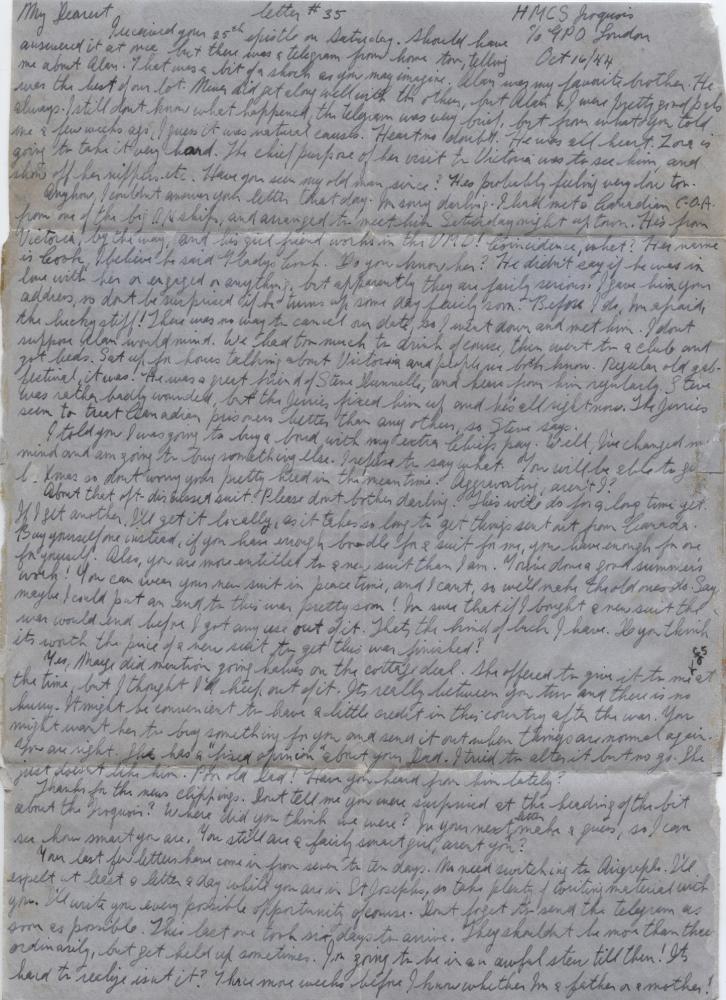 My Dearest letter # 35 HMCS Iroquois
I received your 25th epistle on Saturday. Should have c/o GPO London
answered it at once, but there was a telegram from home too, telling Oct 16/44
me about Alan. That was a bit of a shock as you may imagine. Alan was my favorite brother. He
was the best of our lot. Never did get along well with the others, but Alan & I were pretty good pals
always. I still don't know what happened, the telegram was very brief, but from what you told
me a few weeks ago, I guess it was natural causes. Heart no doubt. He was all heart. Zora is
going to take it very hard. The chief purpose of her visit to Victoria was to see him and
show off her nippers etc. Have you seen my old man since? Hes probably feeling very low too.
Anyhow, I couldn't answer your letter that day. Im sorry darling. I had met a Canadian C.O.A.
from one of the big A/C ships, and arranged to meet him Saturday night up town. He's from
Victoria, by the way, and his girl friend works in the V.M.D! Coincidence, what? Her name
is Cook, I believe he said Gladys Cook. Do you know her? He didn't say if he was in
love with her or engaged or anything, but apparently they are fairly serious. I gave him your
address, so don't be surprised if he turns up some day fairly soon. Before I do, Im afraid,
the lucky stiff! There was no way to cancel our date, so I went down and met him. I dont
suppose Alan would mind. We had too much to drink of course, then went to a club and
got beds. Sat up for hours talking about Victoria and people we both know. Regular old gab-
festival, it was. He was a great friend of Steve and hears from him regularly. Steve
was rather badly wounded, but the Jerries fixed him up and hes all right now. The Jerries
seem to treat Canadian prisoners better than any others, so Steve says.
I told you I was going to buy a bond with my extra Chiefs pay. Well, I've changed my
mind and am going to buy something else. I refuse to say what. You will be able to
Xmas so dont worry your pretty head in the meantime. Aggravating, aren't I?
About that oft discussed suit. Please don't bother darling. This will do for a long time yet.
If I get another, I'll get it locally, as it takes so long to get things sent out from Canada.
Buy yourself one instead, if you have enough boodle for a suit for me, you have enough for one
for yourself. Also, you are more entitled to a new suit than I am. You've done a good summers
work! You can wear your new suit in peace time, and I cant, so we'll make the old ones do. Say,
maybe I could put an end to this war pretty soon! Im sure that if I bought a new suit the
war would end before I got any use out of it. Thats the kind of luck I have. Do you think
its worth the price of a new suit to get this war finished?
Yes, Marge did mention going halves on the cottage deal. She offered to give it to me at
the time, but I thought I'd keep out of it. Its really between you two and there is no
hurry. It might be convenient to have a little credit in this country after the war. You
might want her to buy something for you and send it out when things are normal again.
You are right. She has a "fixed opinion" about your Dad. I tried to alter it but no go. She
just doesn't like him. Poor old Dad! Have you heard from him lately?
Thanks for the news clippings. Dont tell me you were surprised at the heading of the bit
about the Iroquois? Where did you think we were? In your next letter make a guess, so I can
see how smart you are. You still are a fairly smart gal, aren't you?
Your last few letters have come in from seven to ten days. No need switching to Airgraphs. I'll
expect at least a letter a day while you are in St Josephs, so take plenty of writing material with
you. I'll write you every possible opportunity of course. Dont forget to send the telegram as
soon as possible. This last one took six days to arrive. They shouldnt be more than three
ordinarily, but get held up sometimes. I'm going to be in an awful stew till then! Its
hard to realize isnt it? Three more weeks before I know whether Im a father or a mother!